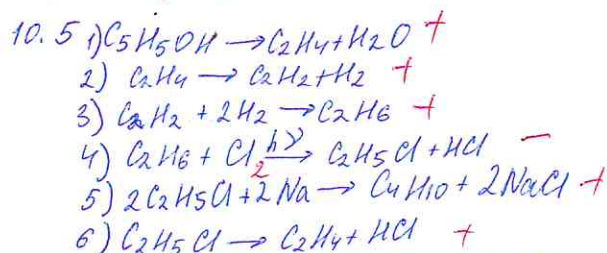 10.5 1) C5H5OH → C2H4 + H2O +
2) C2H4 → C2H2 + H2 +
3) C2H2 + 2H2 → C2H6 +
4) C2H6 + Cl2 hν→ C2H5Cl + HCl −
5) 2C2H5Cl + 2Na → C4H10 + 2NaCl +
6) C2H5Cl → C2H4 + HCl +